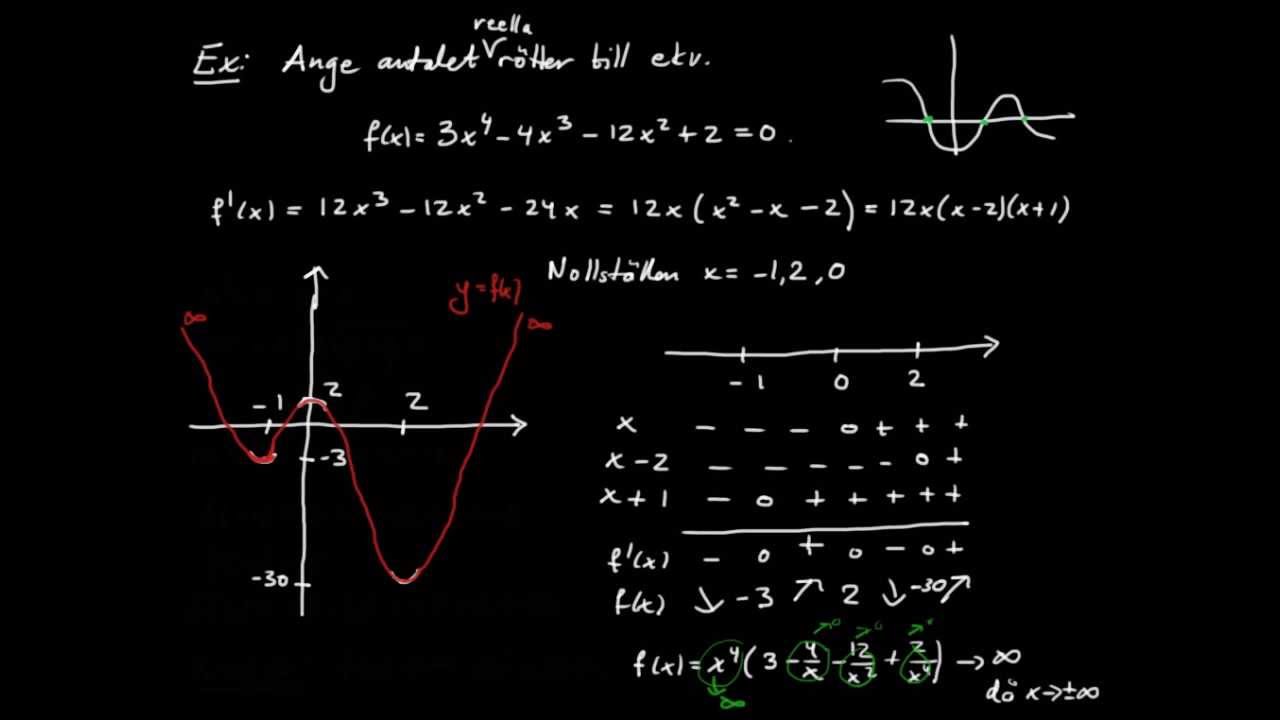 reella
Ex: Ange antalet rötter till ekv.
f(x) = 3x⁴ - 4x³ - 12x² + 2 = 0.
f'(x) = 12x³ - 12x² - 24x = 12x(x² - x - 2) = 12x(x-2)(x+1)
Nollställen x = -1, 2, 0
∞ y = f(x) ∞
-1 2 2
-3
-30
-1 0 2
x - - - 0 + + +
x-2 - - - - - 0 +
x+1 - 0 + + + + +
f'(x) - 0 + 0 - 0 +
f(x) ↘ -3 ↗ 2 ↘ -30 ↗
→0 →0 →0
f(x) = x⁴(3 - 4/x - 12/x² + 2/x⁴) → ∞
↓ ∞
då x → ±∞